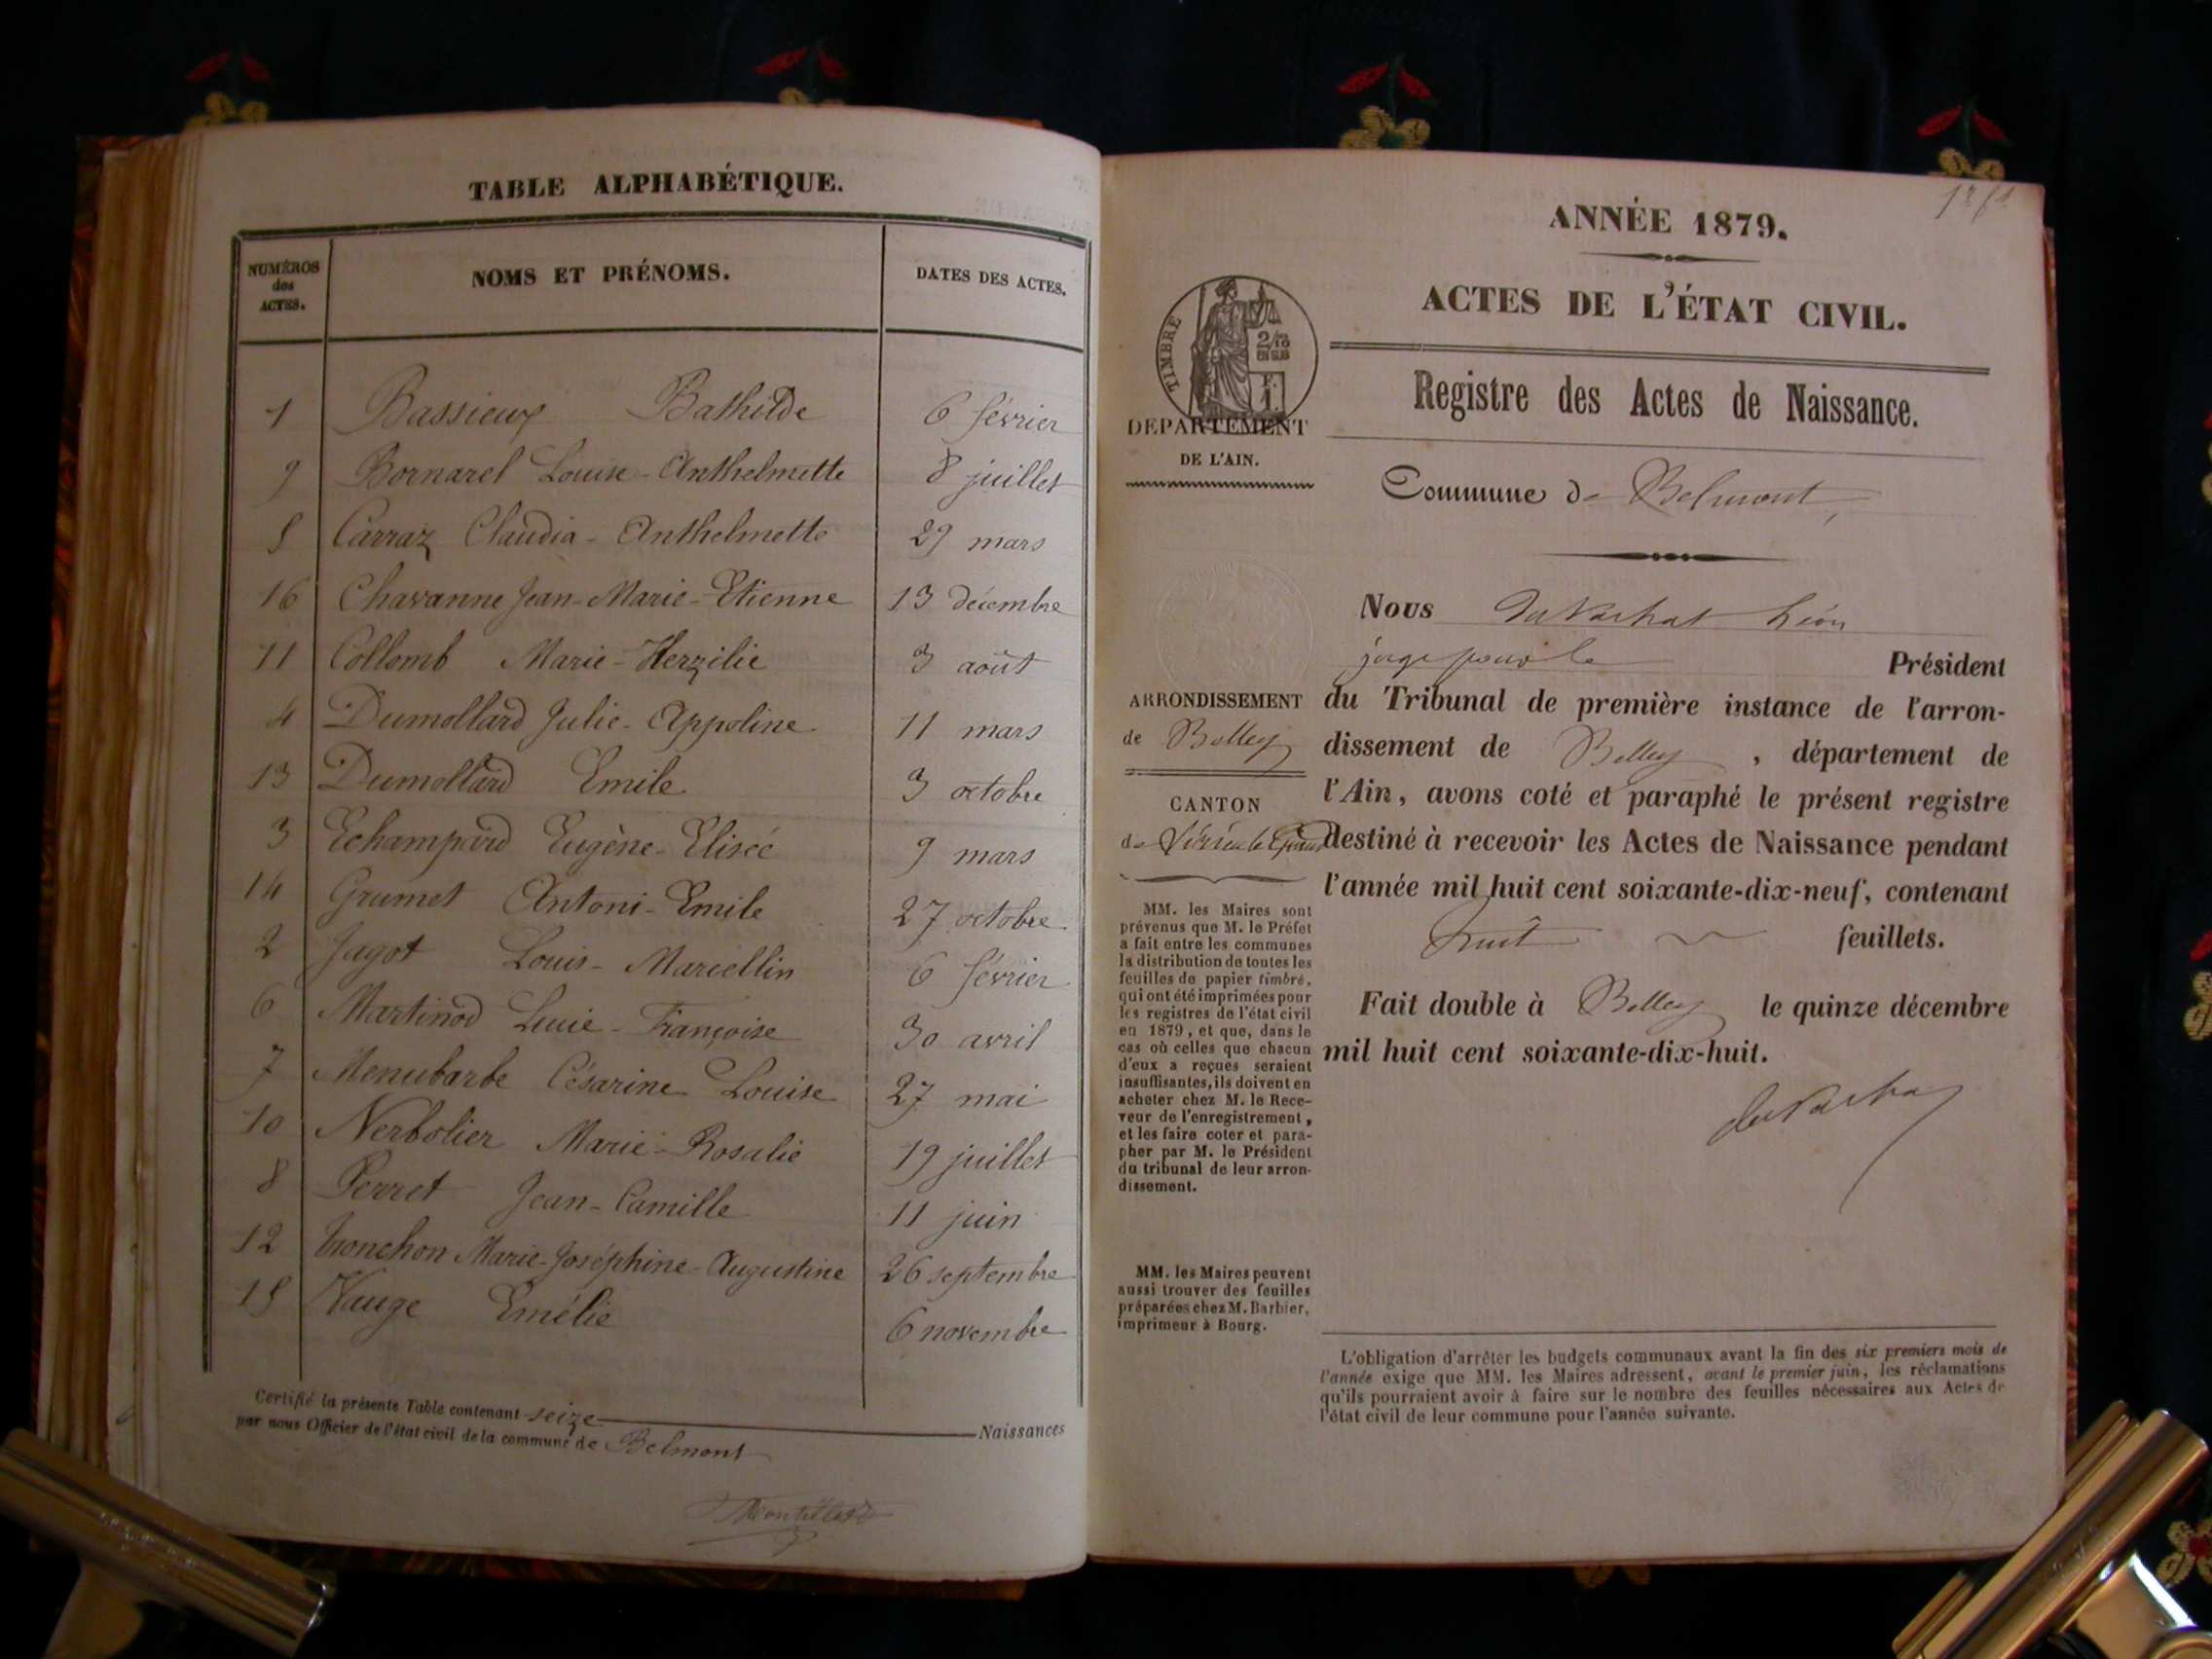 TABLE ALPHABÉTIQUE.
NUMÉROS
des
ACTES.
NOMS ET PRÉNOMS.
DATES DES ACTES.
1 Bassieux Bathilde 6 février
9 Bornarel Louise-Anthelmette 8 juillet
5 Carraz Claudia-Anthelmette 29 mars
16 Chavanne Jean-Marie-Etienne 13 décembre
11 Collomb Marie-Herzilie 3 août
4 Dumollard Julie-Appoline 11 mars
13 Dumollard Emile 3 octobre
3 Echampard Eugène-Elisée 9 mars
14 Grumet Antoni-Emile 27 octobre
2 Jagot Louis-Marcellin 6 février
6 Martinod Lucie-Françoise 30 avril
7 Menubarbe Césarine Louise 27 mai
10 Nerbolier Marie-Rosalie 19 juillet
8 Perret Jean-Camille 11 juin
12 Tronchon Marie-Joséphine-Augustine 26 septembre
15 Vauge Emélie 6 novembre
Certifié la présente Table contenant seize Naissances
par nous Officier de l'état civil de la commune de Belmont
ANNÉE 1879.
ACTES DE L'ÉTAT CIVIL.
TIMBRE
2/10
EN SUS
DEPARTEMENT
DE L'AIN.
Registre des Actes de Naissance.
Commune de Belmont,
Nous Léon
juge pour le Président
du Tribunal de première instance de l'arron-
dissement de Belley, département de
l'Ain, avons coté et paraphé le présent registre
destiné à recevoir les Actes de Naissance pendant
l'année mil huit cent soixante-dix-neuf, contenant
huit feuillets.
Fait double à Belley le quinze décembre
mil huit cent soixante-dix-huit.
ARRONDISSEMENT
de Belley
CANTON
de
MM. les Maires sont
prévenus que M. le Préfet
a fait entre les communes
la distribution de toutes les
feuilles de papier timbré,
qui ont été imprimées pour
les registres de l'état civil
en 1879, et que, dans le
cas où celles que chacun
d'eux a reçues seraient
insuffisantes, ils doivent en
acheter chez M. le Rece-
veur de l'enregistrement,
et les faire coter et para-
pher par M. le Président
du tribunal de leur arron-
dissement.
MM. les Maires peuvent
aussi trouver des feuilles
préparées chez M. Barbier,
imprimeur à Bourg.
L'obligation d'arrêter les budgets communaux avant la fin des six premiers mois de
l'année exige que MM. les Maires adressent, avant le premier juin, les réclamations
qu'ils pourraient avoir à faire sur le nombre des feuilles nécessaires aux Actes de
l'état civil de leur commune pour l'année suivante.